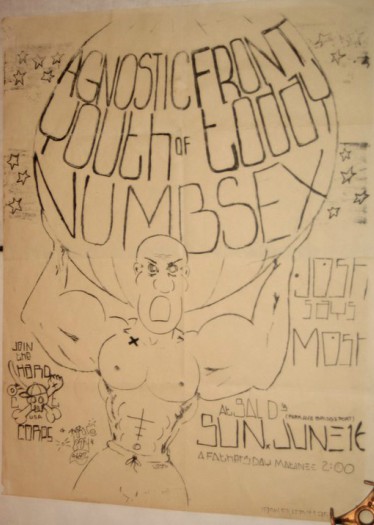 AGNOSTIC FRONT
YOUTH OF TODAY
NUMBSEX
JOSH
SAYS
MOSH
JOIN
THE
HARD
CORPS
At
SUN. JUNE 16
A FATHERS DAY MATINEE 2:00